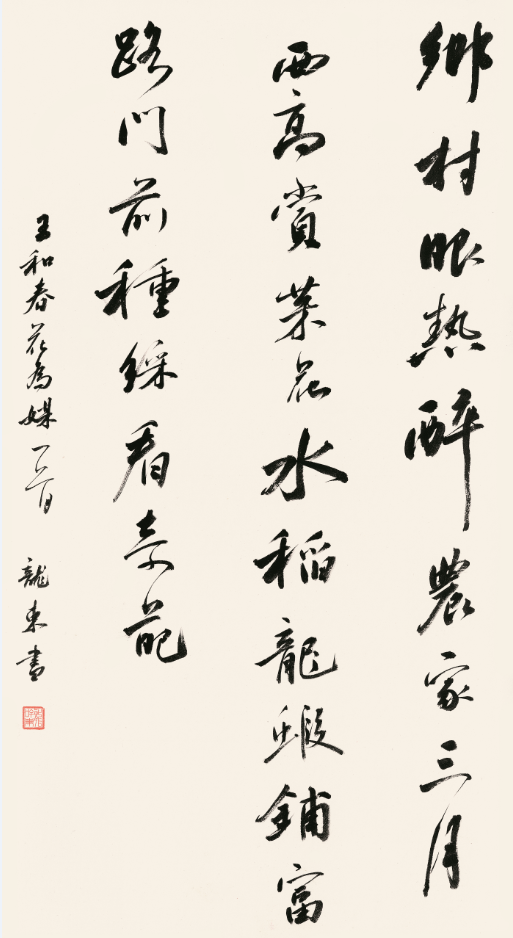 鄉村眼熱醉農家三月
西高賞菜花水稻龍蝦鋪富
路門前種綵看奇葩
王和春花為媒一首
龍東書